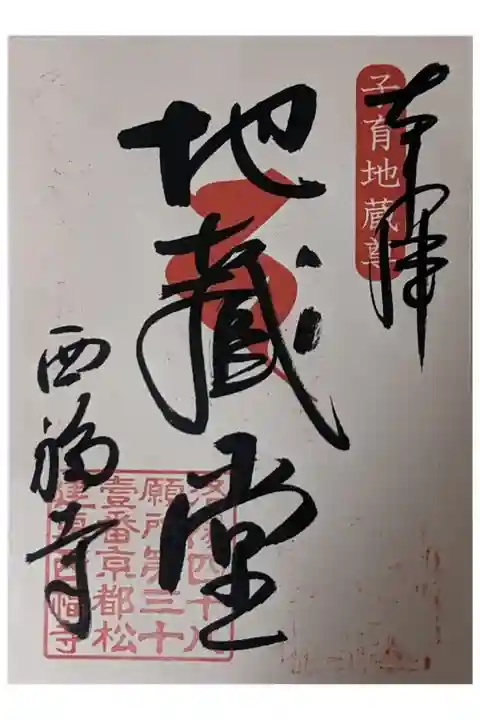 奉拝
子育地蔵尊
地蔵堂
西福寺
洛陽四十八
願所第三十
壹番京都松